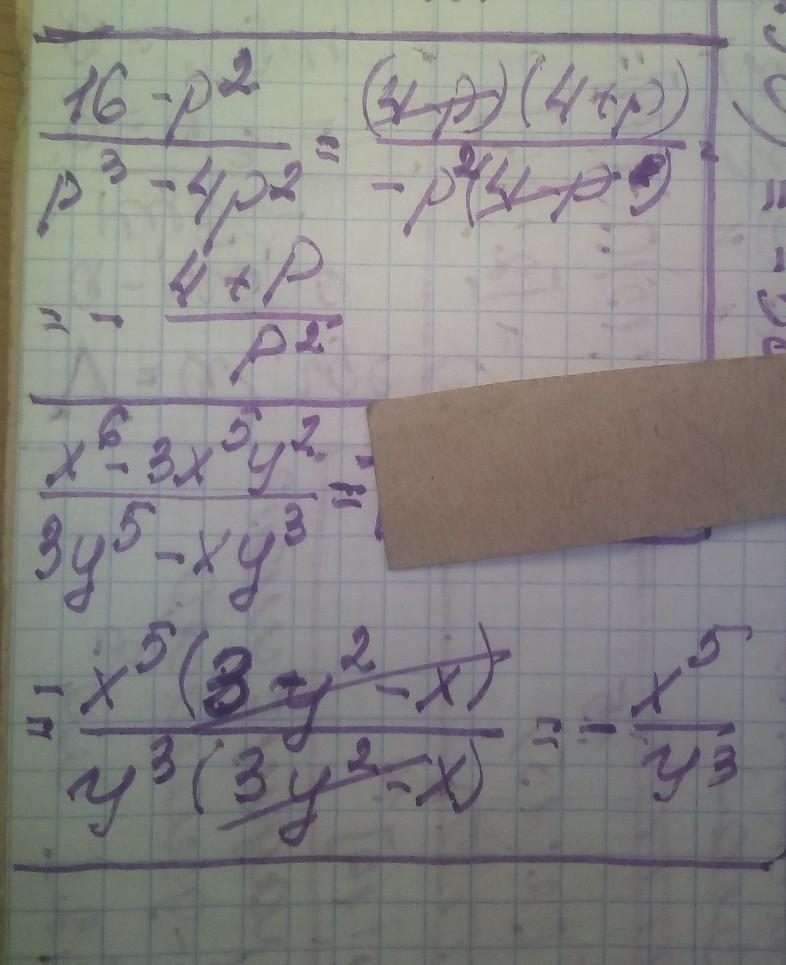 16 - p² / p³ - 4p² = (4-p)(4+p) / -p²(4-p) =
= - 4+p / p²
x⁶ - 3x⁵y² / 3y⁵ - xy³ =
= - x⁵(3y² - x) / y³(3y² - x) = - x⁵ / y³